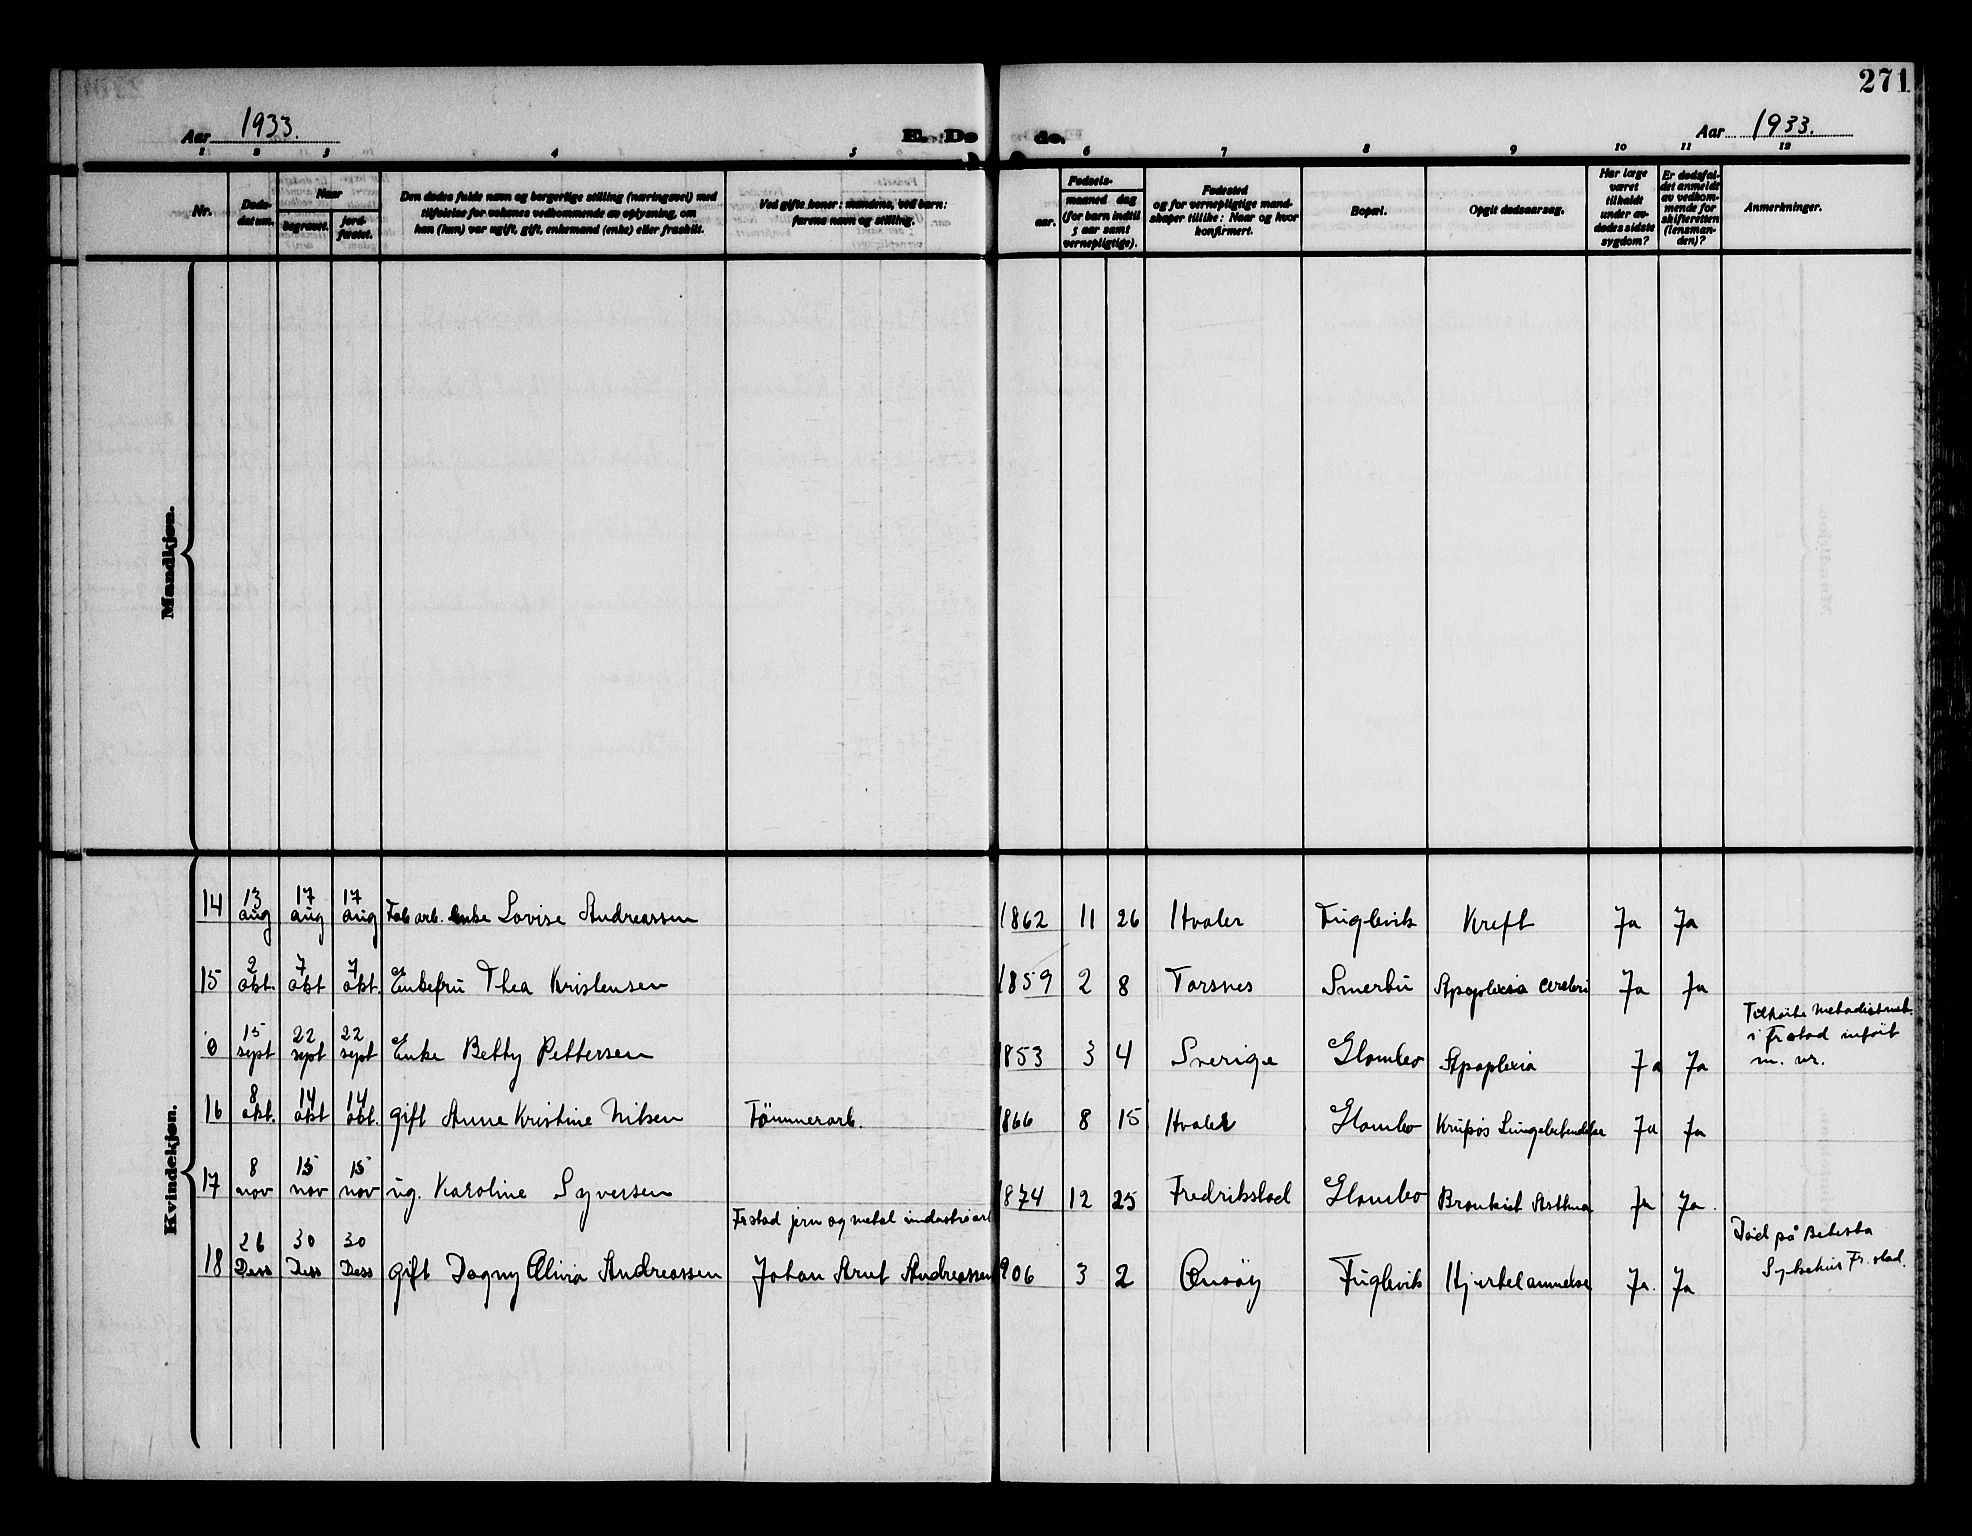 271
Aar 1933. E. Dø de. Aar 1933.
1 2 3 4 5 6 7 8 9 10 11 12
Nr.
Døds-
datum.
Naar
Begravet.
jord-
fæstet.
Den dødes fulde navn og borgerlige stilling (næringsvei) med
tilføielse for voksnes vedkommende av oplysning, om
han (hun) var ugift, gift, enkemand (enke) eller fraskilt.
Ved gifte koner: mandens, ved barn:
farens navn og stilling.
Fødsels-
aar.
maaned dag
(for barn indtil
5 aar samt
vernepligtige).
Fødested
og for vernepligtige mand-
skaper tillike: Naar og hvor
konfirmert.
Bopæl.
Opgit dødsaarsag.
Har læge
været
tilkaldt
under av-
dødes sidste
sygdom?
Er dødsfal-
det anmeldt
av vedkom-
mende for
skifteretten
(lensman-
den)?
Anmerkninger.
Mandkjøn.
Kvindekjøn.
14 13 aug 17 aug 17 aug Fab arb. enke Lovise Andreassen 1862 11 26 Hvaler Fuglevik Kreft Ja Ja
15 2 okt. 7 okt 7 okt. Enkefru Thea Kristensen 1859 2 8 Torsnes Smertu Apoplexia cerebri Ja Ja
0 15 sept 22 sept 22 sept Enke Betty Pettersen 1853 3 4 Sverige Glombo Apoplexia Ja Ja
Tilhørte Metodistmek.
i Fr.stad infört
m. nr.
16 8 okt. 14 okt 14 okt. gift Anne Kristine Nilsen Tömmerarb. 1866 8 15 Hvaler Glombo Krupøs Lungebetendelse Ja Ja
17 8 nov 15 nov 15 nov ug. Karoline Syversen 1874 12 25 Fredrikstad Glombo Bronkit Asthma Ja Ja.
Fr stad jern og metal industriarb
18 26 Dess 30 Dess 30 Dess gift Dagny Olivia Andreassen Johan Arnt Andreassen 1906 3 2 Onsöy Fuglevik Hjertelammelse Ja. Ja
Död på Betesta
Sykehus Fr. stad.